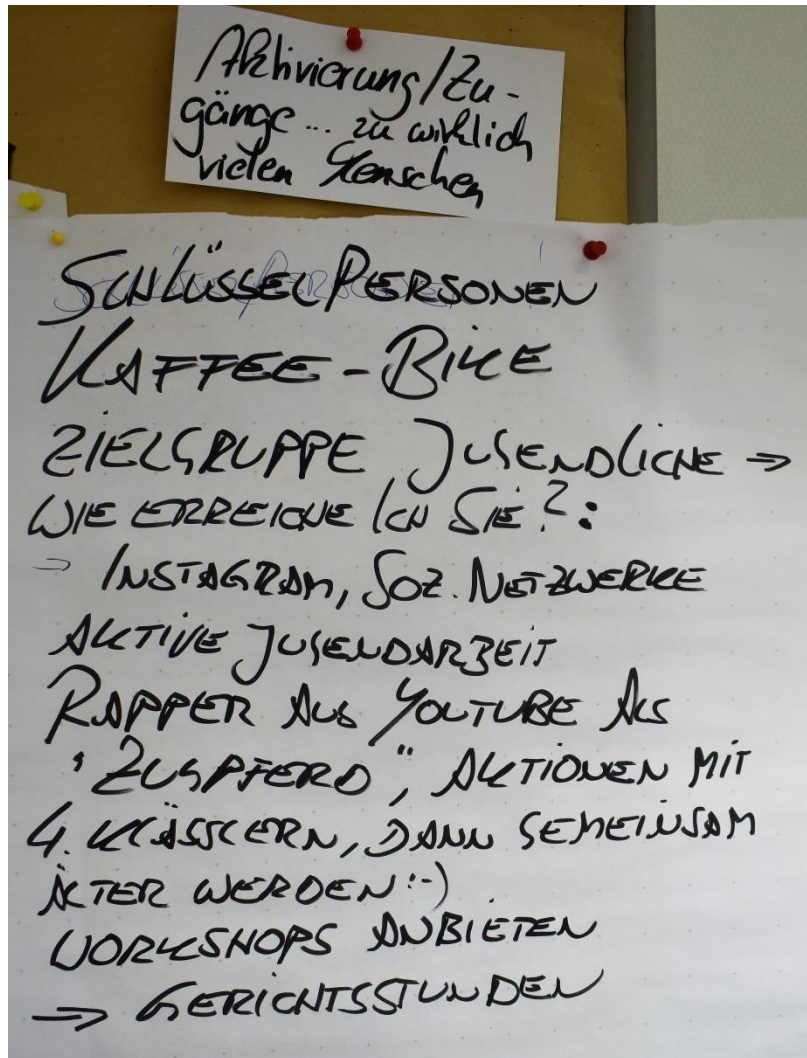 Aktivierung/Zu-
gänge... zu wirklich
vielen Menschen
SCHLÜSSELPERSONEN
KAFFEE-BIKE
ZIELGRUPPE JUGENDLICHE →
WIE ERREICHE ICH SIE?:
→ INSTAGRAM, SOZ. NETZWERKE
AKTIVE JUGENDARBEIT
RAPPER AUS YOUTUBE ALS
"ZUGPFERD", AKTIONEN MIT
4. KLÄSSLERN, DANN GEMEINSAM
ÄLTER WERDEN :-)
WORKSHOPS ANBIETEN
→ GERICHTSSTUNDEN